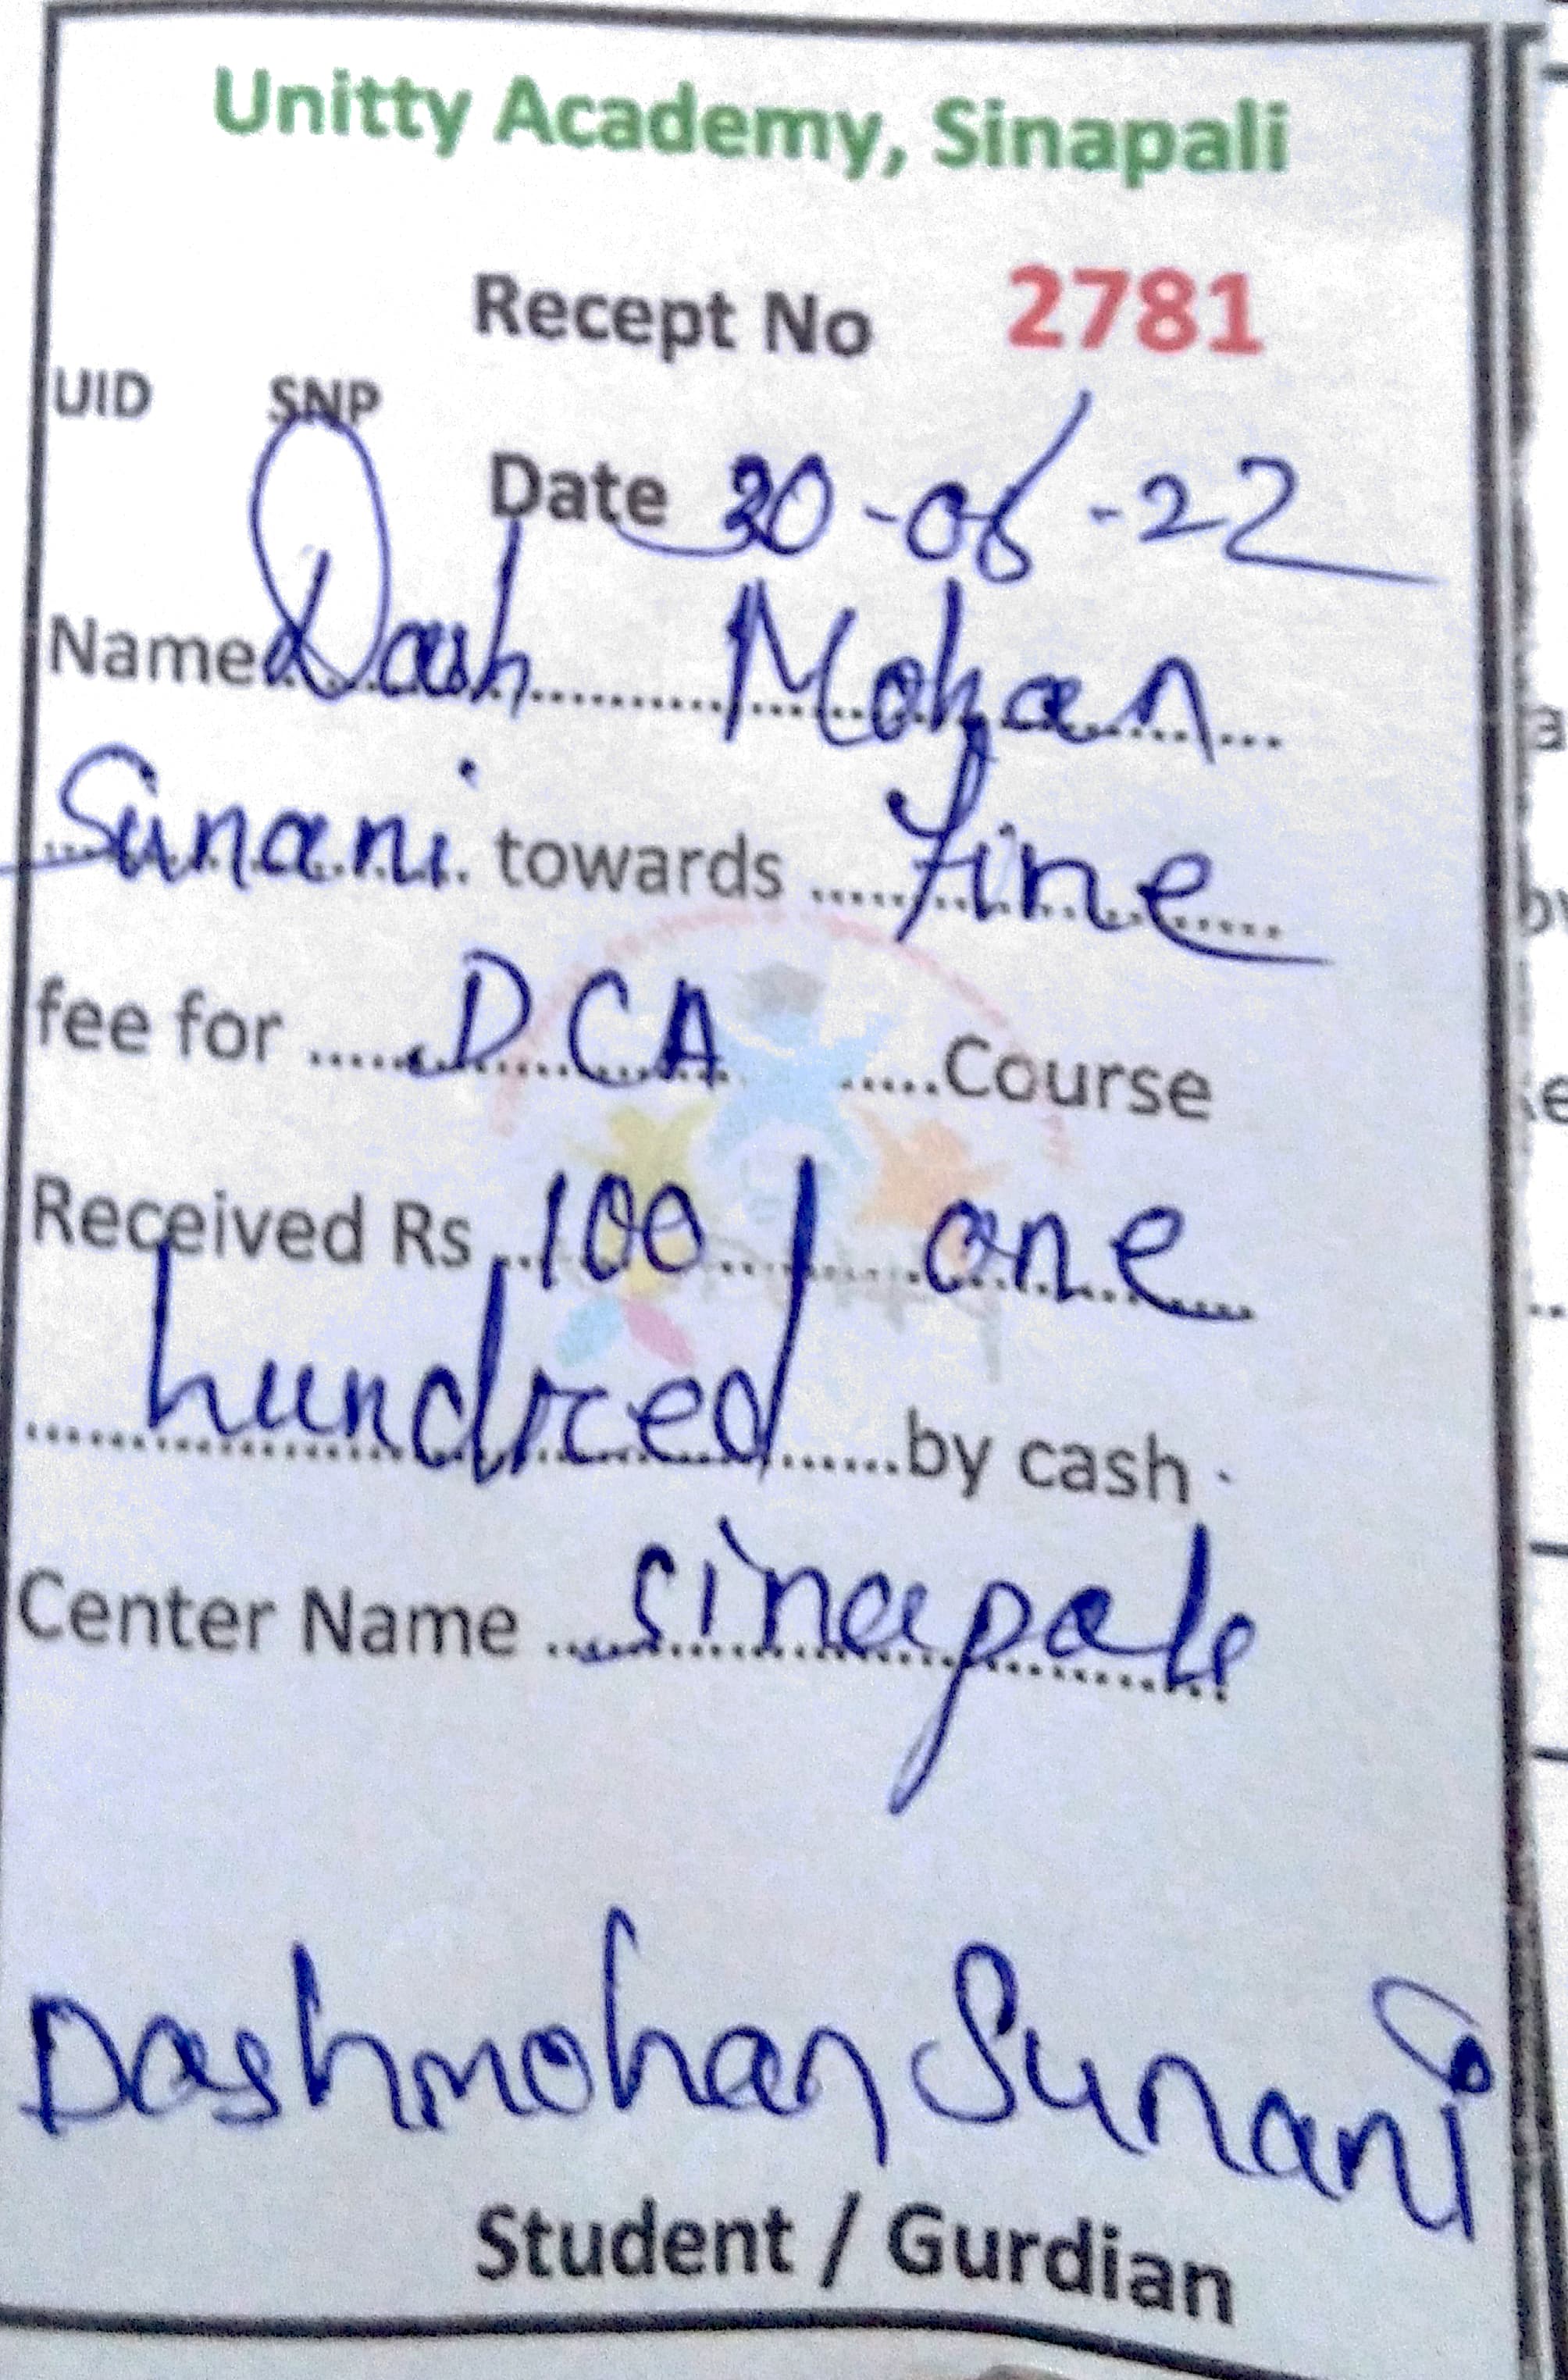 Unitty Academy, Sinapali
Recept No 2781
UID SNP
Date 20-06-22
Name Dash Mohan
Sunani towards fine
fee for DCA Course
Received Rs 100/ one
hundred by cash
Center Name Sinapali
Dashmohan Sunani
Student / Gurdian